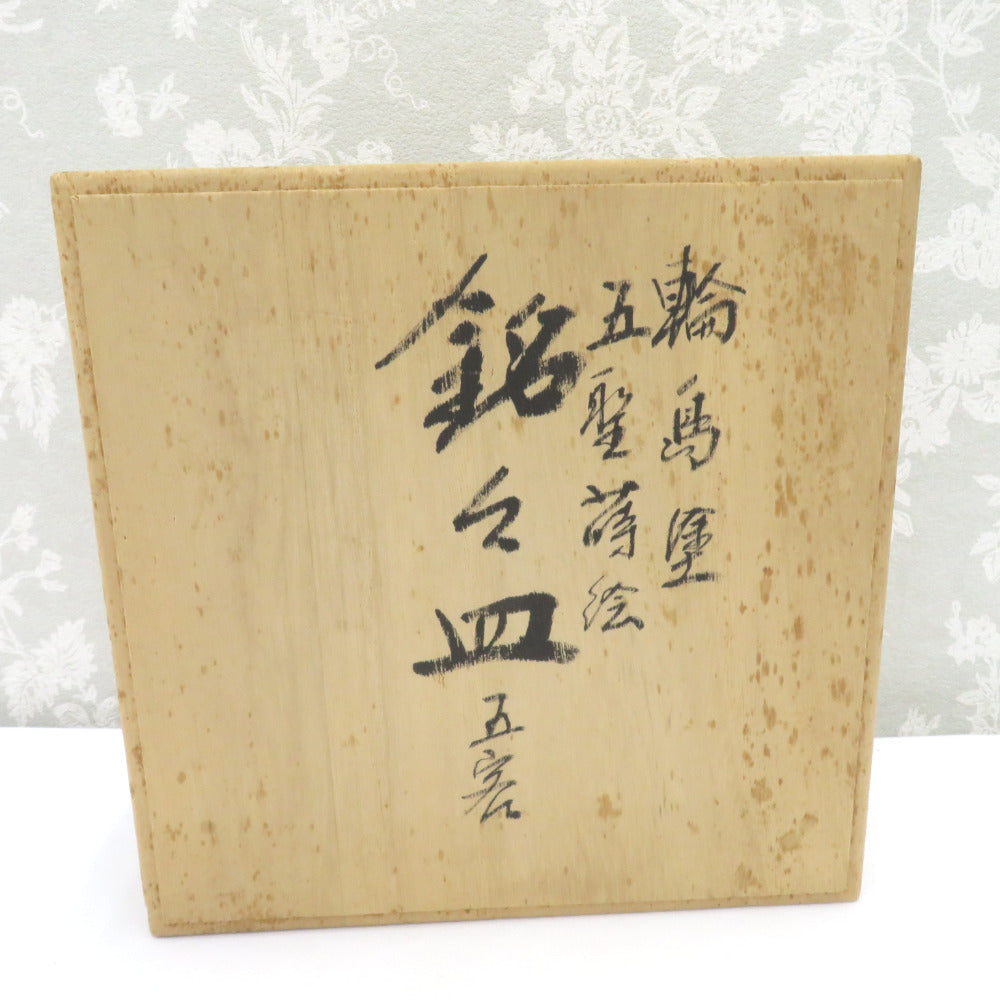 輪島塗
五聖蒔絵
銘々皿
五客